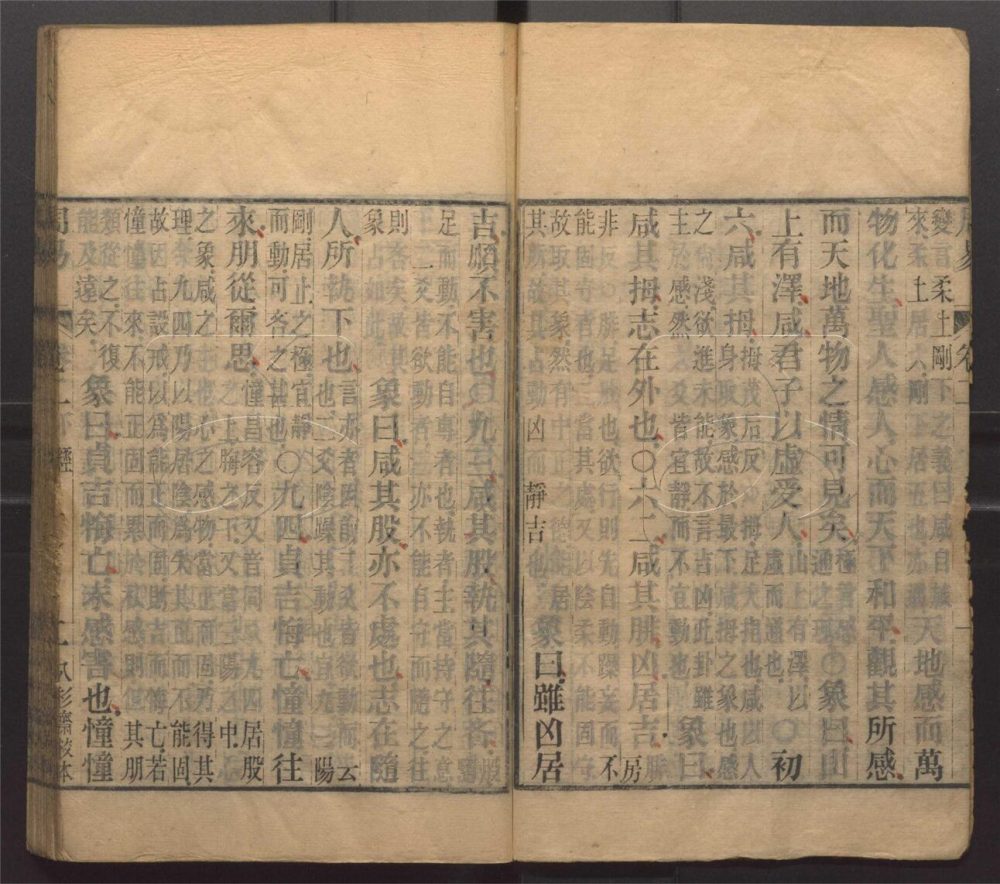 變言柔上剛下之義曰咸自旅
來柔上居六剛下居五也亦通
天地感而萬
物化生聖人感人心而天下和平觀其所感
而天地萬物之情可見矣
極言感
通之理
○象曰山
上有澤咸君子以虛受人
山上有澤以
虛而通也
○初
六咸其拇
拇茂后反○拇足大指也咸以人
身取象感於最下咸拇之象也感
之尚淺欲進未能故不言吉凶此卦雖
主於感然六爻皆宜靜而不宜動也
象曰
咸其拇志在外也○六二咸其腓凶居吉
腓房
非反○腓足肚也欲行則先自動躁妄而不
能固守者也二當其處又以陰柔不能固守
故取其象然有中正之德能居
其所故其占動凶而靜吉也
象曰雖凶居
吉順不害也○九三咸其股執其隨往吝
股隨
足而動不能自專者也執者主當持守之意
下二爻皆欲動者三亦不能自守而隨之往
則吝矣故其
象占如此
象曰咸其股亦不處也志在隨
人所執下也
言亦者因前二爻皆欲動而云
也二爻陰躁其動也宜九三陽
剛居止之極宜靜
而動可吝之甚也
○九四貞吉悔亡憧憧往
來朋從爾思
憧昌容反又音同○九四居股
之上脢之下又當三陽之中
之象咸之主也心之感物當正而固乃得其
理今九四乃以陽居陰爲失其正而不能固
故因占設戒以爲能正而固則吉而悔亡若
憧憧往來不能正固而累於私感則但其朋
類從之不復
能及遠矣
象曰貞吉悔亡未感害也憧憧
周易 卷二 下經 二